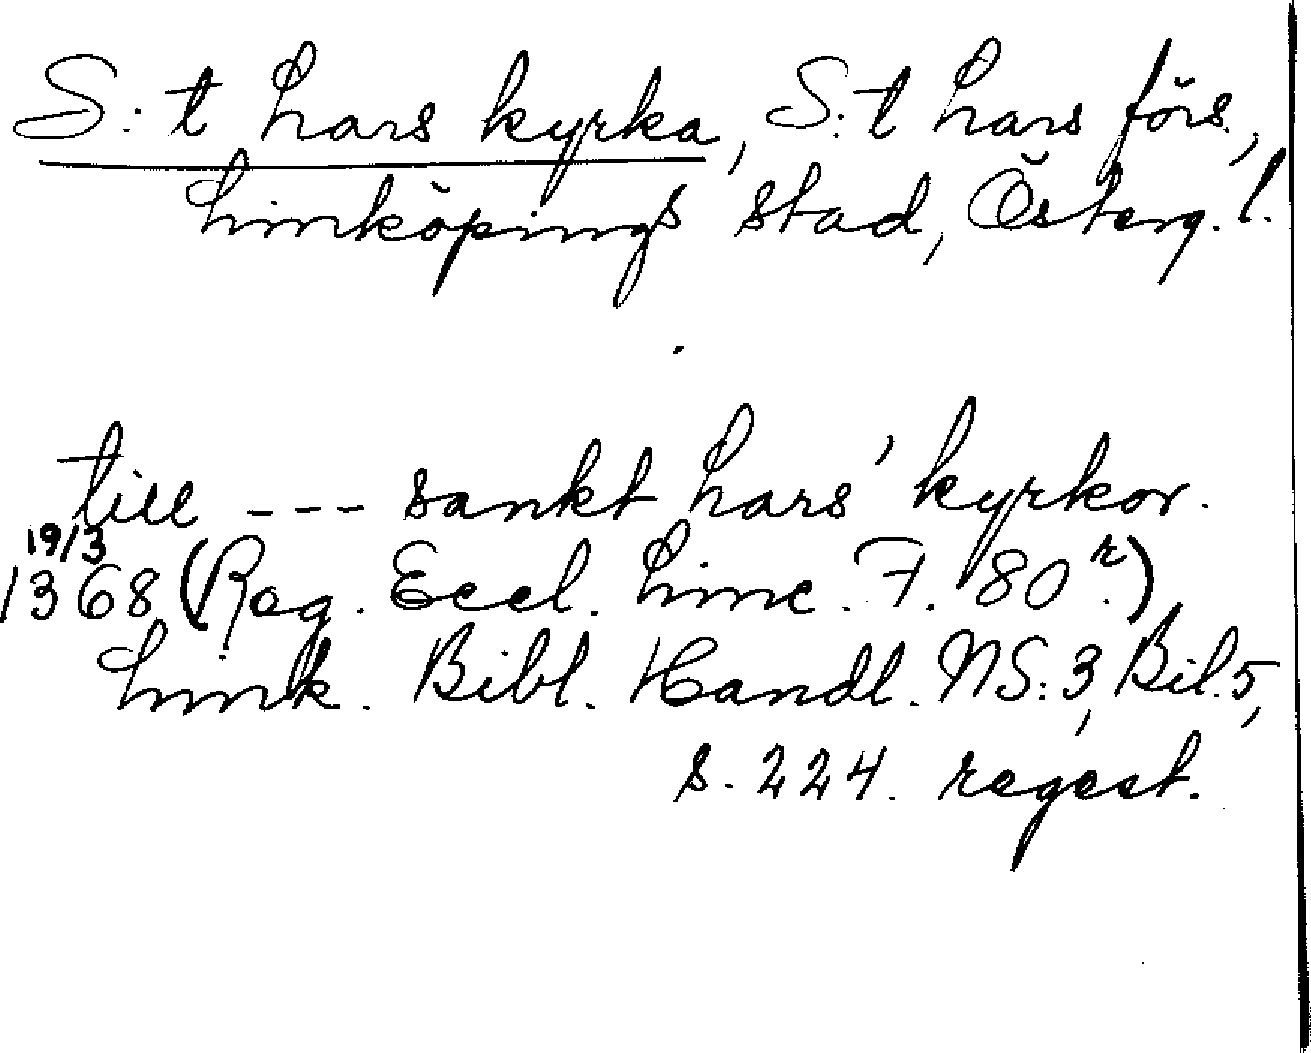 S:t Lars kyrka, S:t Lars förs.,
Linköpings stad, Österg. l.
till --- sankt Lars' kyrkor.
19/3
1368 (Reg. Eccl. Linc. F. 80 r.)
Link. Bibl. Handl. NS: 3, Bil. 5,
s. 224. regest.